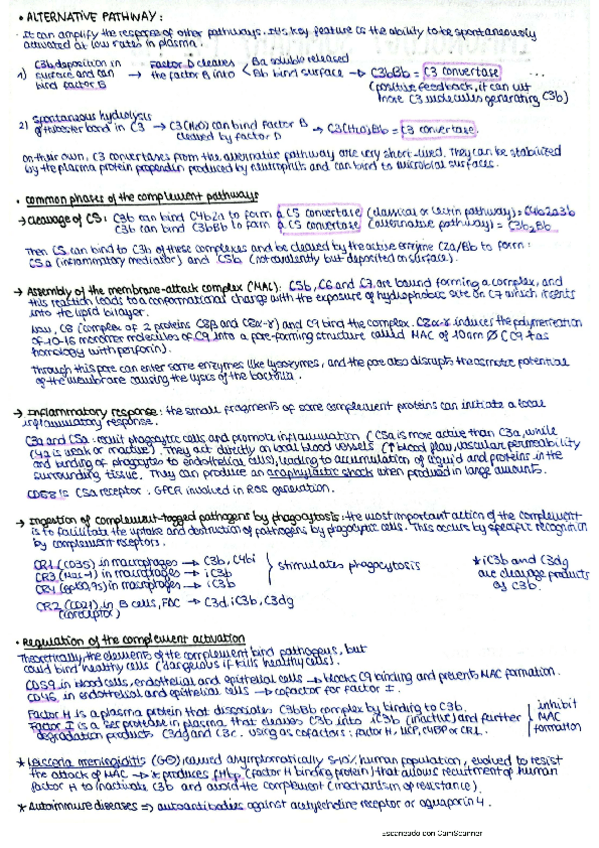 • ALTERNATIVE PATHWAY:
· It can amplify the response of other pathways. It is key feature is the ability to be spontaneously
activated at low rates in plasma.
1) C3b deposition in surface and can bind factor B → Factor D cleaves the factor B into < Ba soluble released / Bb bind surface → C3bBb = C3 convertase ...
(positive feedback, it can cut
more C3 molecules generating C3b)
2) Spontaneous hydrolysis of thioester bond in C3 → C3(H2O) can bind factor B cleaved by factor D → C3(H2O)Bb = C3 convertase.
On their own, C3 convertases from the alternative pathway are very short-lived. They can be stabilized
by the plasma protein properdin produced by neutrophils and can bind to microbial surfaces.
• Common phases of the complement pathways
→ Cleavage of C5: C3b can bind C4b2a to form a C5 convertase (classical or lectin pathway) = C4b2a3b
C3b can bind C3bBb to form a C5 convertase (alternative pathway) = C3b2Bb
Then C5 can bind to C3b of these complexes and be cleaved by the active enzyme C2a/Bb to form:
C5a (inflammatory mediator) and C5b (not covalently but deposited on surface).
→ Assembly of the membrane-attack complex (MAC): C5b, C6 and C7 are bound forming a complex, and
this reaction leads to a conformational change with the exposure of hydrophobic site on C7 which inserts
into the lipid bilayer.
Now, C8 (complex of 2 proteins C8β and C8α-γ) and C9 bind the complex. C8α-γ induces the polymerization
of 10-16 monomer molecules of C9 into a pore-forming structure called MAC of 10nm Ø (C9 has
homology with perforin).
Through this pore can enter some enzymes like lysozymes, and the pore also disrupts the osmotic potential
of the membrane causing the lysis of the bacteria.
→ Inflammatory response: the small fragments of some complement proteins can initiate a local
inflammatory response.
C3a and C5a: recruit phagocytic cells and promote inflammation (C5a is more active than C3a, while
C4a is weak or inactive). They act directly on local blood vessels (↑ blood flow, vascular permeability
and binding of phagocytes to endothelial cells), leading to accumulation of liquid and proteins in the
surrounding tissue. They can produce an anaphylactic shock when produced in large amounts.
CD88 is C5a receptor. GPCR involved in ROS generation.
→ Ingestion of complement-tagged pathogens by phagocytosis: the most important action of the complement
is to facilitate the uptake and destruction of pathogens by phagocytic cells. This occurs by specific recognition
by complement receptors.
CR1 (CD35) in macrophages → C3b, C4bi
CR3 (Mac-1) in macrophages → iC3b } stimulates phagocytosis
CR4 in macrophages → iC3b
CR2 (CD21) in B cells, FDC → C3d, iC3b, C3dg
(coreceptor)
* iC3b and C3dg
are cleavage products
of C3b.
• Regulation of the complement activation
Theoretically, the elements of the complement bind pathogens, but
could bind healthy cells (dangerous if kills healthy cells).
CD59 in blood cells, endothelial and epithelial cells → blocks C9 binding and prevents MAC formation.
CD46 in endothelial and epithelial cells → cofactor for factor I.
Factor H is a plasma protein that dissociates C3bBb complex by binding to C3b.
Factor I is a ser protease in plasma that cleaves C3b into iC3b (inactive) and further
degradation products C3dg and C3c. Using as cofactors: factor H, MCP, C4BP or CR1.
} inhibit
MAC
formation
* Neisseria meningitidis (G⊖) carried asymptomatically 5-10% human population, evolved to resist
the attack of MAC → * produces fHbp (factor H binding protein) that allows recruitment of human
factor H to inactivate C3b and avoid the complement (mechanism of resistance).
* Autoimmune diseases ⇒ autoantibodies against acetylcholine receptor or aquaporin 4.
Escaneado con CamScanner